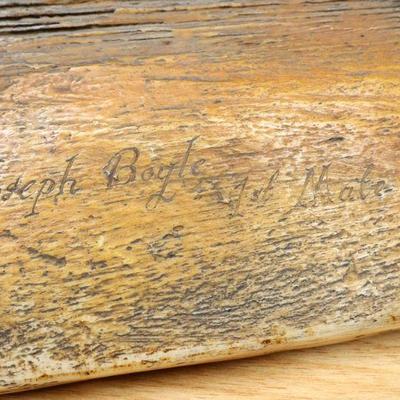 oseph Boyle 1st Mate